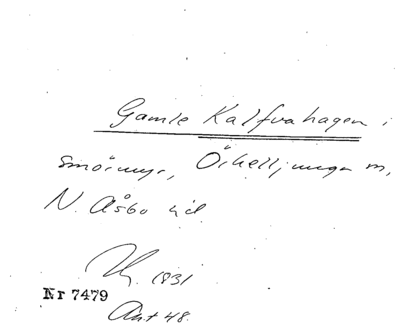 Gamle Kalfvahagen i
Smörmyr, Örkelljunga m,
N. Åsbo hd
1831
Nr 7479
Ant 48.